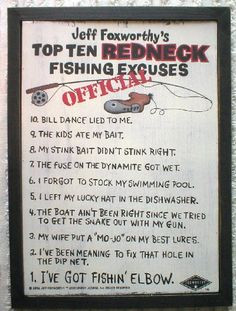 Jeff Foxworthy's
TOP TEN REDNECK
FISHING EXCUSES
OFFICIAL
10. BILL DANCE LIED TO ME.
9. THE KIDS ATE MY BAIT.
8. MY STINK BAIT DIDN'T STINK RIGHT.
7. THE FUSE ON THE DYNAMITE GOT WET.
6. I FORGOT TO STOCK MY SWIMMING POOL.
5. I LEFT MY LUCKY HAT IN THE DISHWASHER.
4. THE BOAT AIN'T BEEN RIGHT SINCE WE TRIED
TO GET THE SNAKE OUT WITH MY GUN.
3. MY WIFE PUT A "MO-JO" ON MY BEST LURE'S.
2. I'VE BEEN MEANING TO FIX THAT HOLE IN
THE DIP NET.
1. I'VE GOT FISHIN' ELBOW.